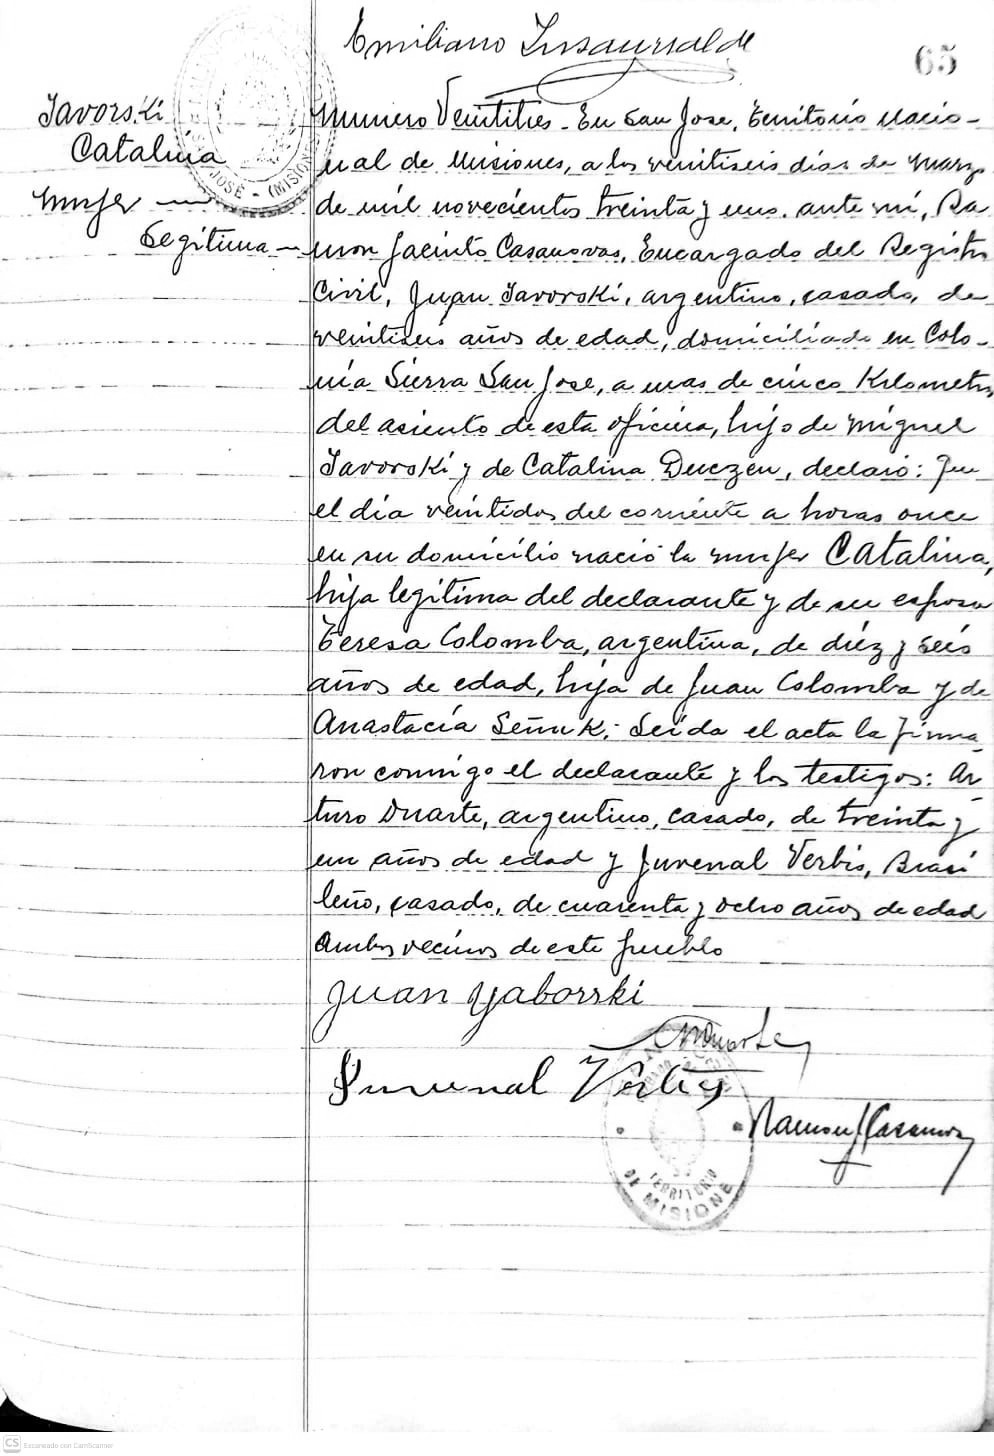 Emiliano Insaurralde
65
Iavorski
Catalina
mujer
Legitima
JOSÉ - (MISION
Numero Veintitres - En San Jose, Territorio Nacio-
nal de Misiones, a los veintiseis dias de Marzo
de mil novecientos treinta y uno. ante mi, Ra
mon Jacinto Casanovas, Encargado del Registro
Civil, Juan Iavorski, argentino, casado, de
veintiseis años de edad, domiciliado en Colo-
nia Sierra San Jose, a mas de cinco Kilometros
del asiento de esta oficina, hijo de Miguel
Iavorski y de Catalina Duczen, declaró: Que
el dia veintidos del corriente a horas once
en su domicilio nació la mujer CAtalina,
hija legitima del declarante y de su esposa
Teresa Colomba, argentina, de diéz y seis
años de edad, hija de Juan Colomba y de
Anastacia Señuk; Leida el acta la firma
ron conmigo el declarante y los testigos: Ar
turo Duarte, argentino, casado, de treinta y
un años de edad y Juvenal Verbis, Brasi
leño, casado, de cuarenta y ocho años de edad
Ambos vecinos de este pueblo
Juan Yaborski
Duarte
Juvenal
Ramon J Casanovas
TERRITORIO
DE MISIONE
CS Escaneado con CamScanner